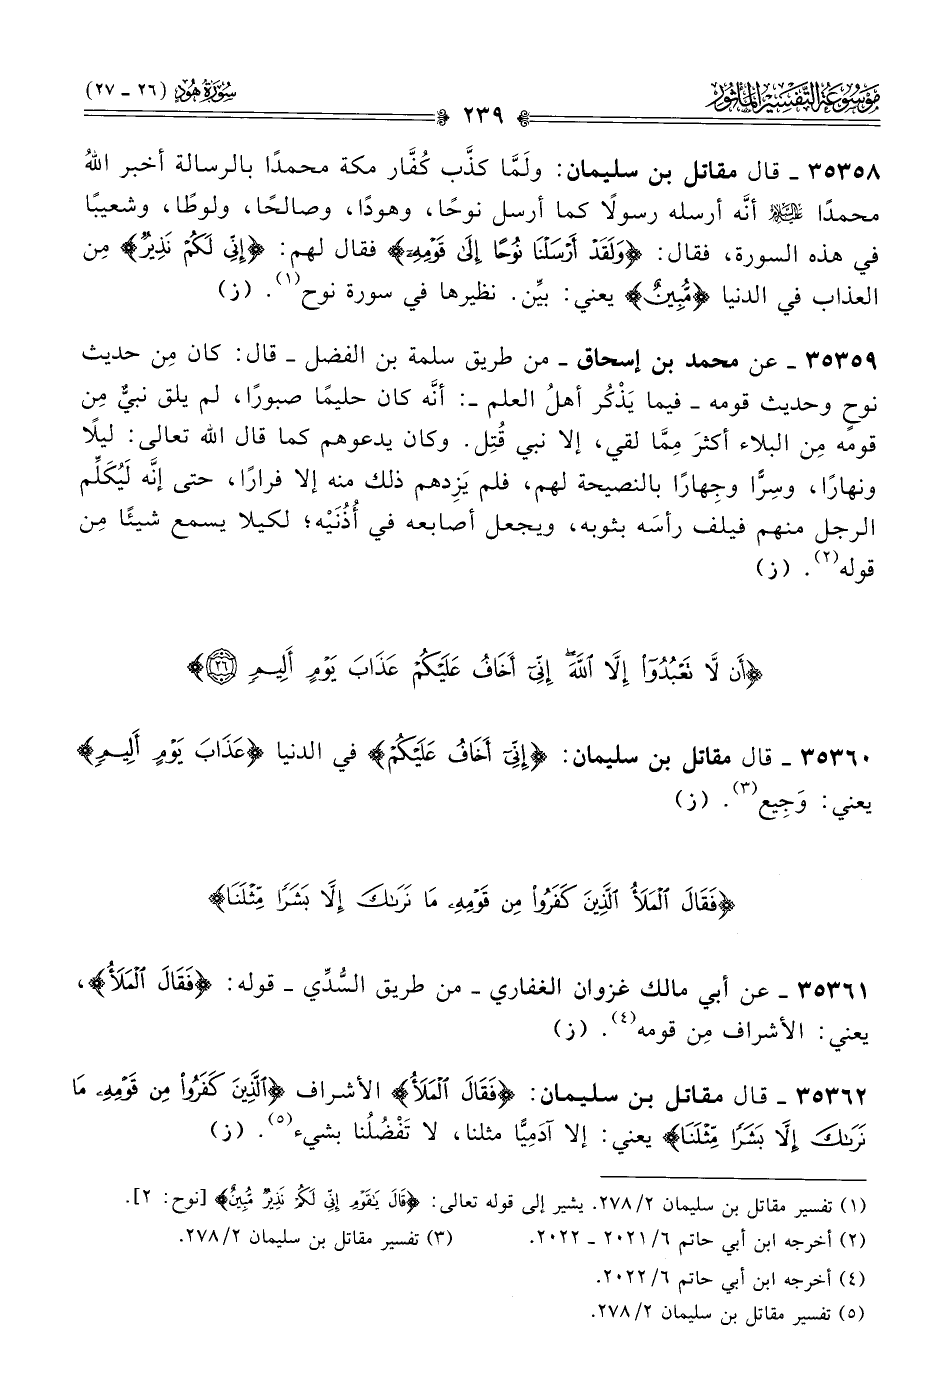 مَوْسُوعَةُ التَّفْسِيرِ المَأثُورِ
سُورَةُ هُودٍ (٢٦ - ٢٧)
٢٣٩
٣٥٣٥٨ ـ قال مقاتل بن سليمان: ولَمَّا كذَّب كُفَّار مكة محمدًا بالرسالة أخبر اللهُ
محمدًا ﷺ أنَّه أرسله رسولًا كما أرسل نوحًا، وهودًا، وصالحًا، ولوطًا، وشعيبًا
في هذه السورة، فقال: ﴿وَلَقَدْ أَرْسَلْنَا نُوحًا إِلَىٰ قَوْمِهِۦ﴾ فقال لهم: ﴿إِنِّي لَكُمْ نَذِيرٌ﴾ مِن
العذاب في الدنيا ﴿مُّبِينٌ﴾ يعني: بيِّن. نظيرها في سورة نوح(١). (ز)
٣٥٣٥٩ ـ عن محمد بن إسحاق ـ من طريق سلمة بن الفضل ـ قال: كان مِن حديث
نوحٍ وحديث قومه ـ فيما يَذْكُر أهلُ العلم ـ: أنَّه كان حليمًا صبورًا، لم يلق نبيٌّ مِن
قومه مِن البلاء أكثرَ مِمَّا لقي، إلا نبي قُتِل. وكان يدعوهم كما قال الله تعالى: ليلًا
ونهارًا، وسِرًّا وجِهارًا بالنصيحة لهم، فلم يَزِدهم ذلك منه إلا فرارًا، حتى إنَّه لَيُكَلِّم
الرجل منهم فيلف رأسَه بثوبه، ويجعل أصابعه في أُذُنَيْه؛ لكيلا يسمع شيئًا مِن
قوله(٢). (ز)
﴿أَن لَّا نَعْبُدُوٓا۟ إِلَّا ٱللَّهَ ۖ إِنِّىٓ أَخَافُ عَلَيْكُمْ عَذَابَ يَوْمٍ أَلِيمٍ ٢٦﴾
٣٥٣٦٠ ـ قال مقاتل بن سليمان: ﴿إِنِّىٓ أَخَافُ عَلَيْكُمْ﴾ في الدنيا ﴿عَذَابَ يَوْمٍ أَلِيمٍ﴾
يعني: وَجِيع(٣). (ز)
﴿فَقَالَ ٱلْمَلَأُ ٱلَّذِينَ كَفَرُوا۟ مِن قَوْمِهِۦ مَا نَرَىٰكَ إِلَّا بَشَرًا مِّثْلَنَا﴾
٣٥٣٦١ ـ عن أبي مالك غزوان الغفاري ـ من طريق السُّدِّي ـ قوله: ﴿فَقَالَ ٱلْمَلَأُ﴾،
يعني: الأشراف مِن قومه(٤). (ز)
٣٥٣٦٢ ـ قال مقاتل بن سليمان: ﴿فَقَالَ ٱلْمَلَأُ﴾ الأشراف ﴿ٱلَّذِينَ كَفَرُوا۟ مِن قَوْمِهِۦ مَا
نَرَىٰكَ إِلَّا بَشَرًا مِّثْلَنَا﴾ يعني: إلا آدَمِيًّا مثلنا، لا تَفْضُلُنا بشيء(٥). (ز)
(١) تفسير مقاتل بن سليمان ٢/ ٢٧٨. يشير إلى قوله تعالى: ﴿قَالَ يَٰقَوْمِ إِنِّى لَكُمْ نَذِيرٌ مُّبِينٌ﴾ [نوح: ٢].
(٢) أخرجه ابن أبي حاتم ٦/ ٢٠٢١ ـ ٢٠٢٢. (٣) تفسير مقاتل بن سليمان ٢/ ٢٧٨.
(٤) أخرجه ابن أبي حاتم ٦/ ٢٠٢٢.
(٥) تفسير مقاتل بن سليمان ٢/ ٢٧٨.